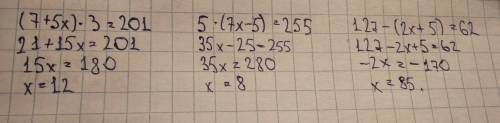 (7+5x)·3=201
21+15x=201
15x=180
x=12
5·(7x-5)=255
35x-25=255
35x=280
x=8
127-(2x+5)=62
127-2x+5=62
-2x=-170
x=85.